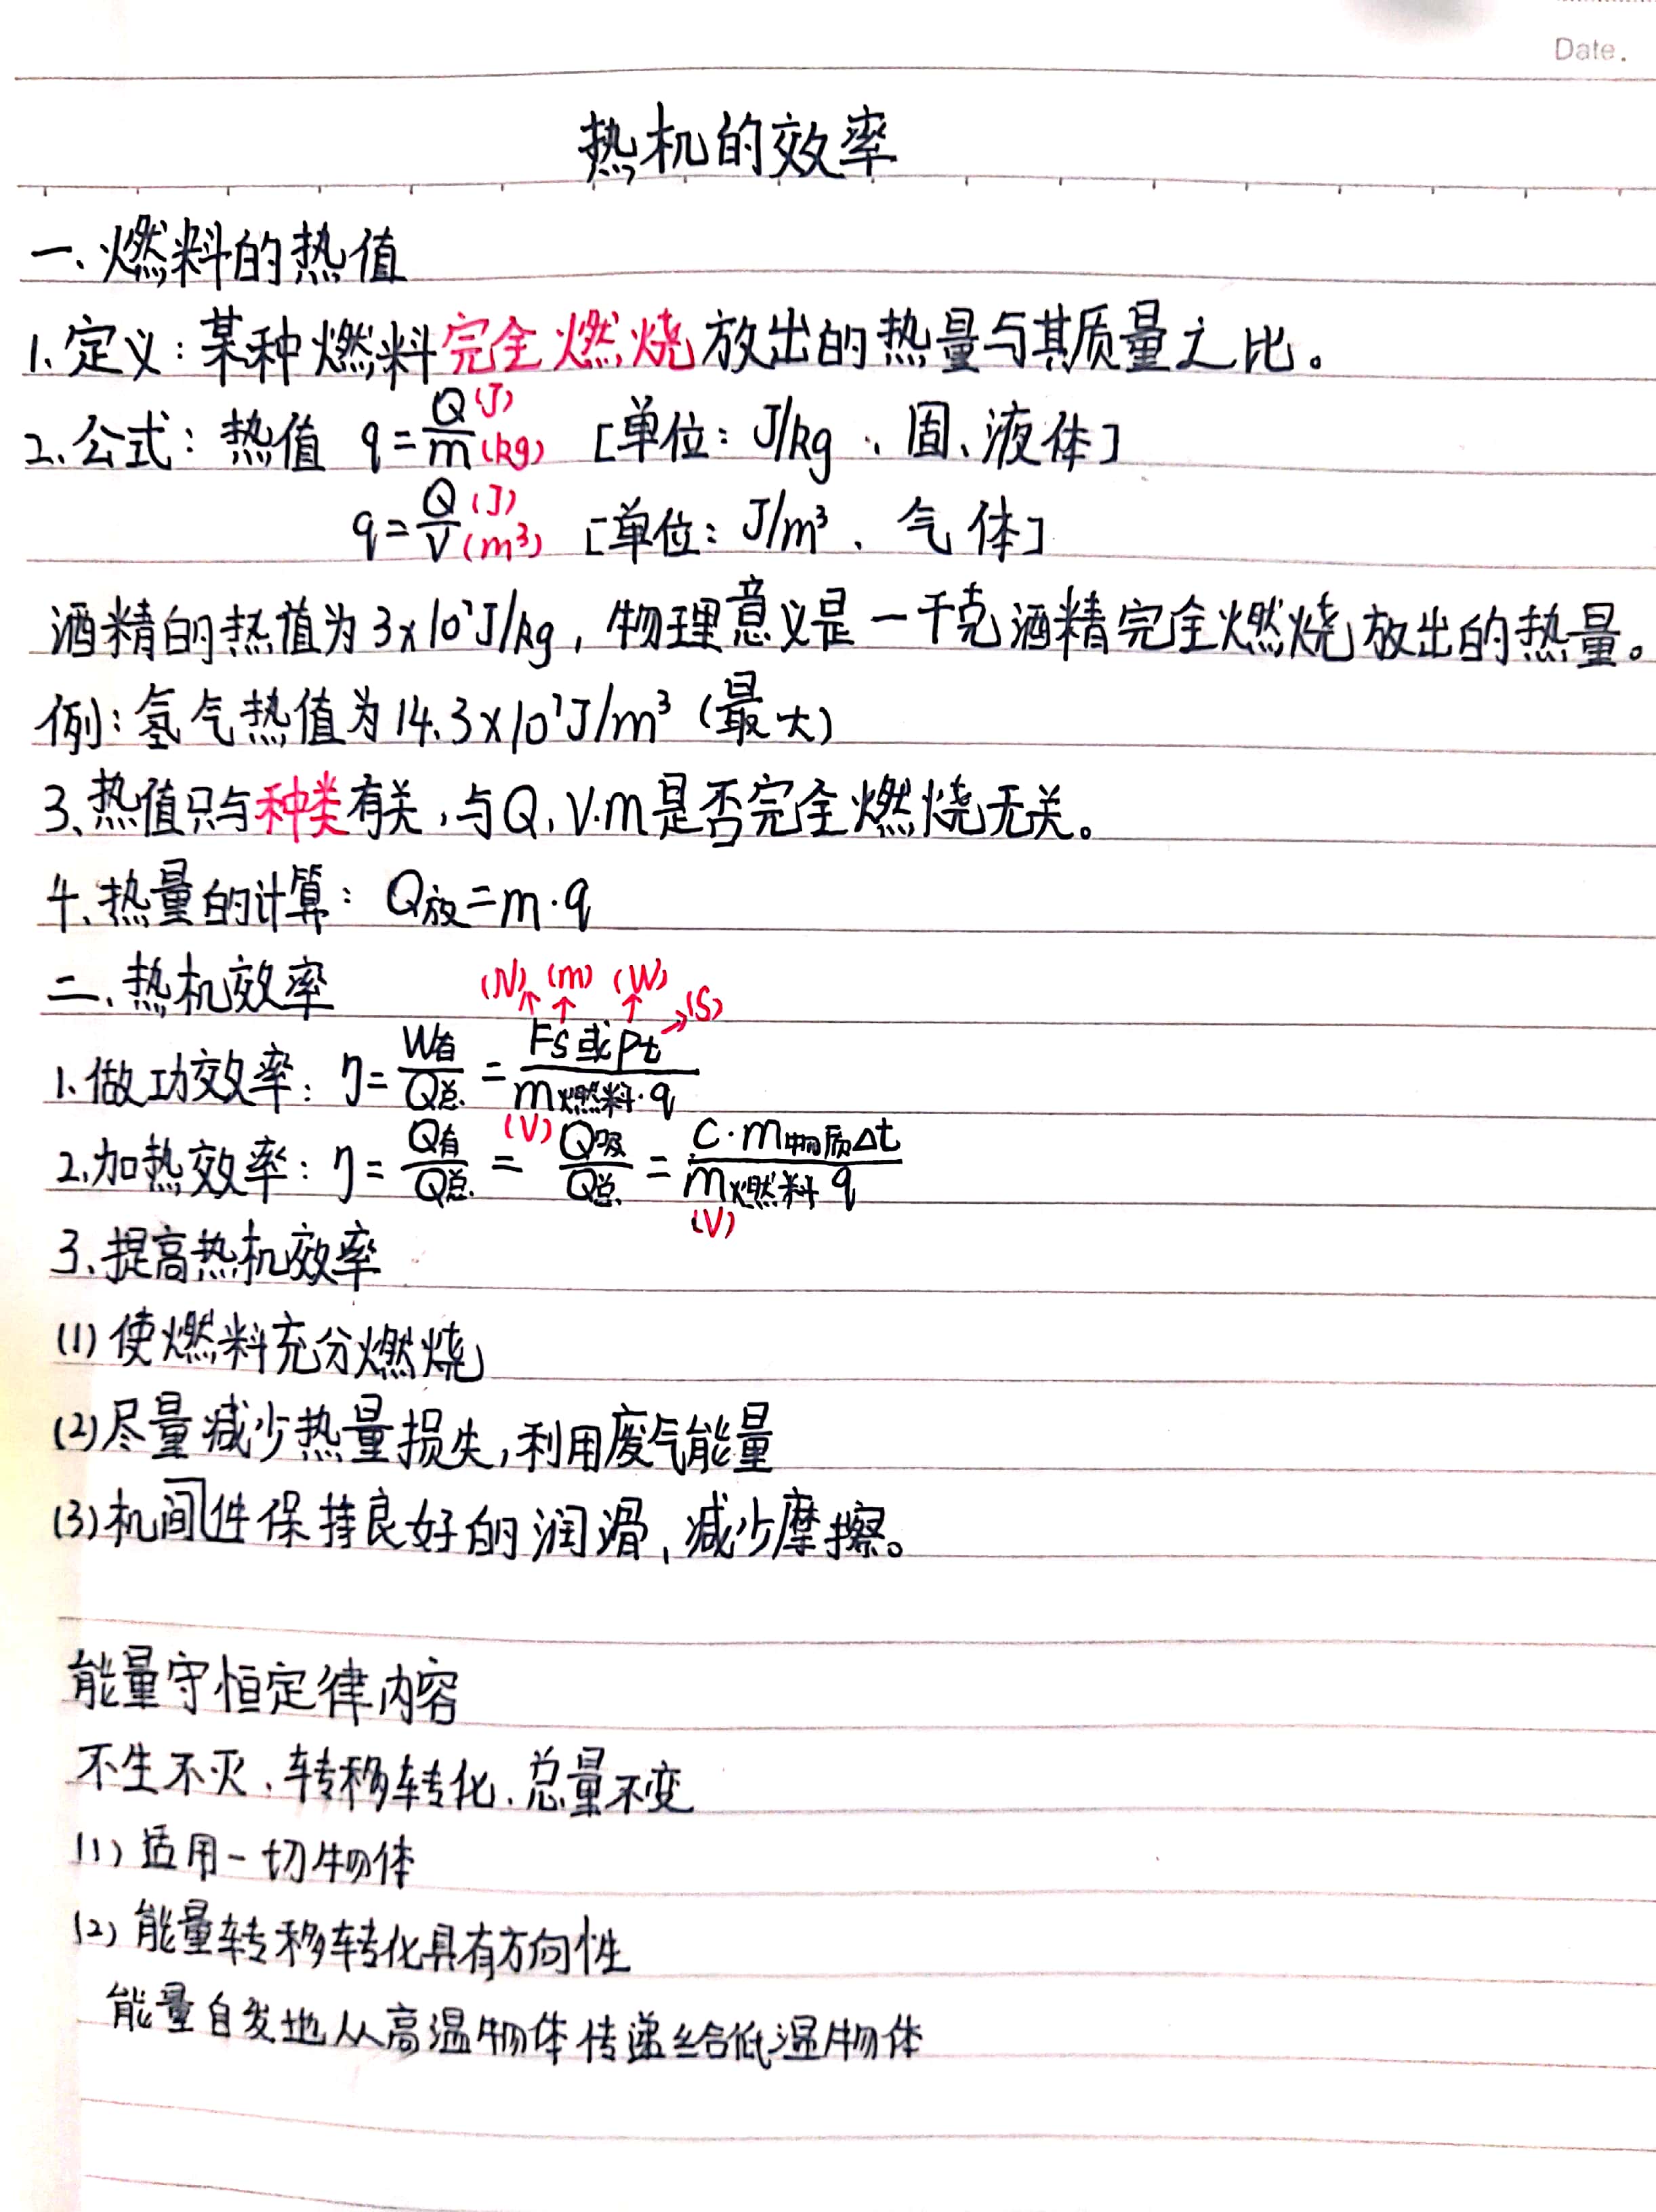 Date.
热机的效率
一、燃料的热值
1、定义：某种燃料完全燃烧放出的热量与其质量之比。
2、公式：热值 q=Q(J)/m(kg) [单位：J/kg、固、液体]
q=Q(J)/V(m³) [单位：J/m³、气体]
酒精的热值为3×10⁷J/kg，物理意义是一千克酒精完全燃烧放出的热量。
例：氢气热值为14.3×10⁷J/m³（最大）
3、热值只与种类有关，与Q、V.m是否完全燃烧无关。
4、热量的计算：Q放=m·q
二、热机效率
(N) (m) (W) (S)
1、做功效率：η=W有/Q总=Fs或Pt/m燃料·q
(V)
2、加热效率：η=Q有/Q总=Q吸/Q总=C·m物质Δt/m燃料q
(V)
3、提高热机效率
(1)使燃料充分燃烧
(2)尽量减少热量损失，利用废气能量
(3)机间件保持良好的润滑，减少摩擦。
能量守恒定律内容
不生不灭、转移转化、总量不变
(1)适用一切物体
(2)能量转移转化具有方向性
能量自发地从高温物体传递给低温物体